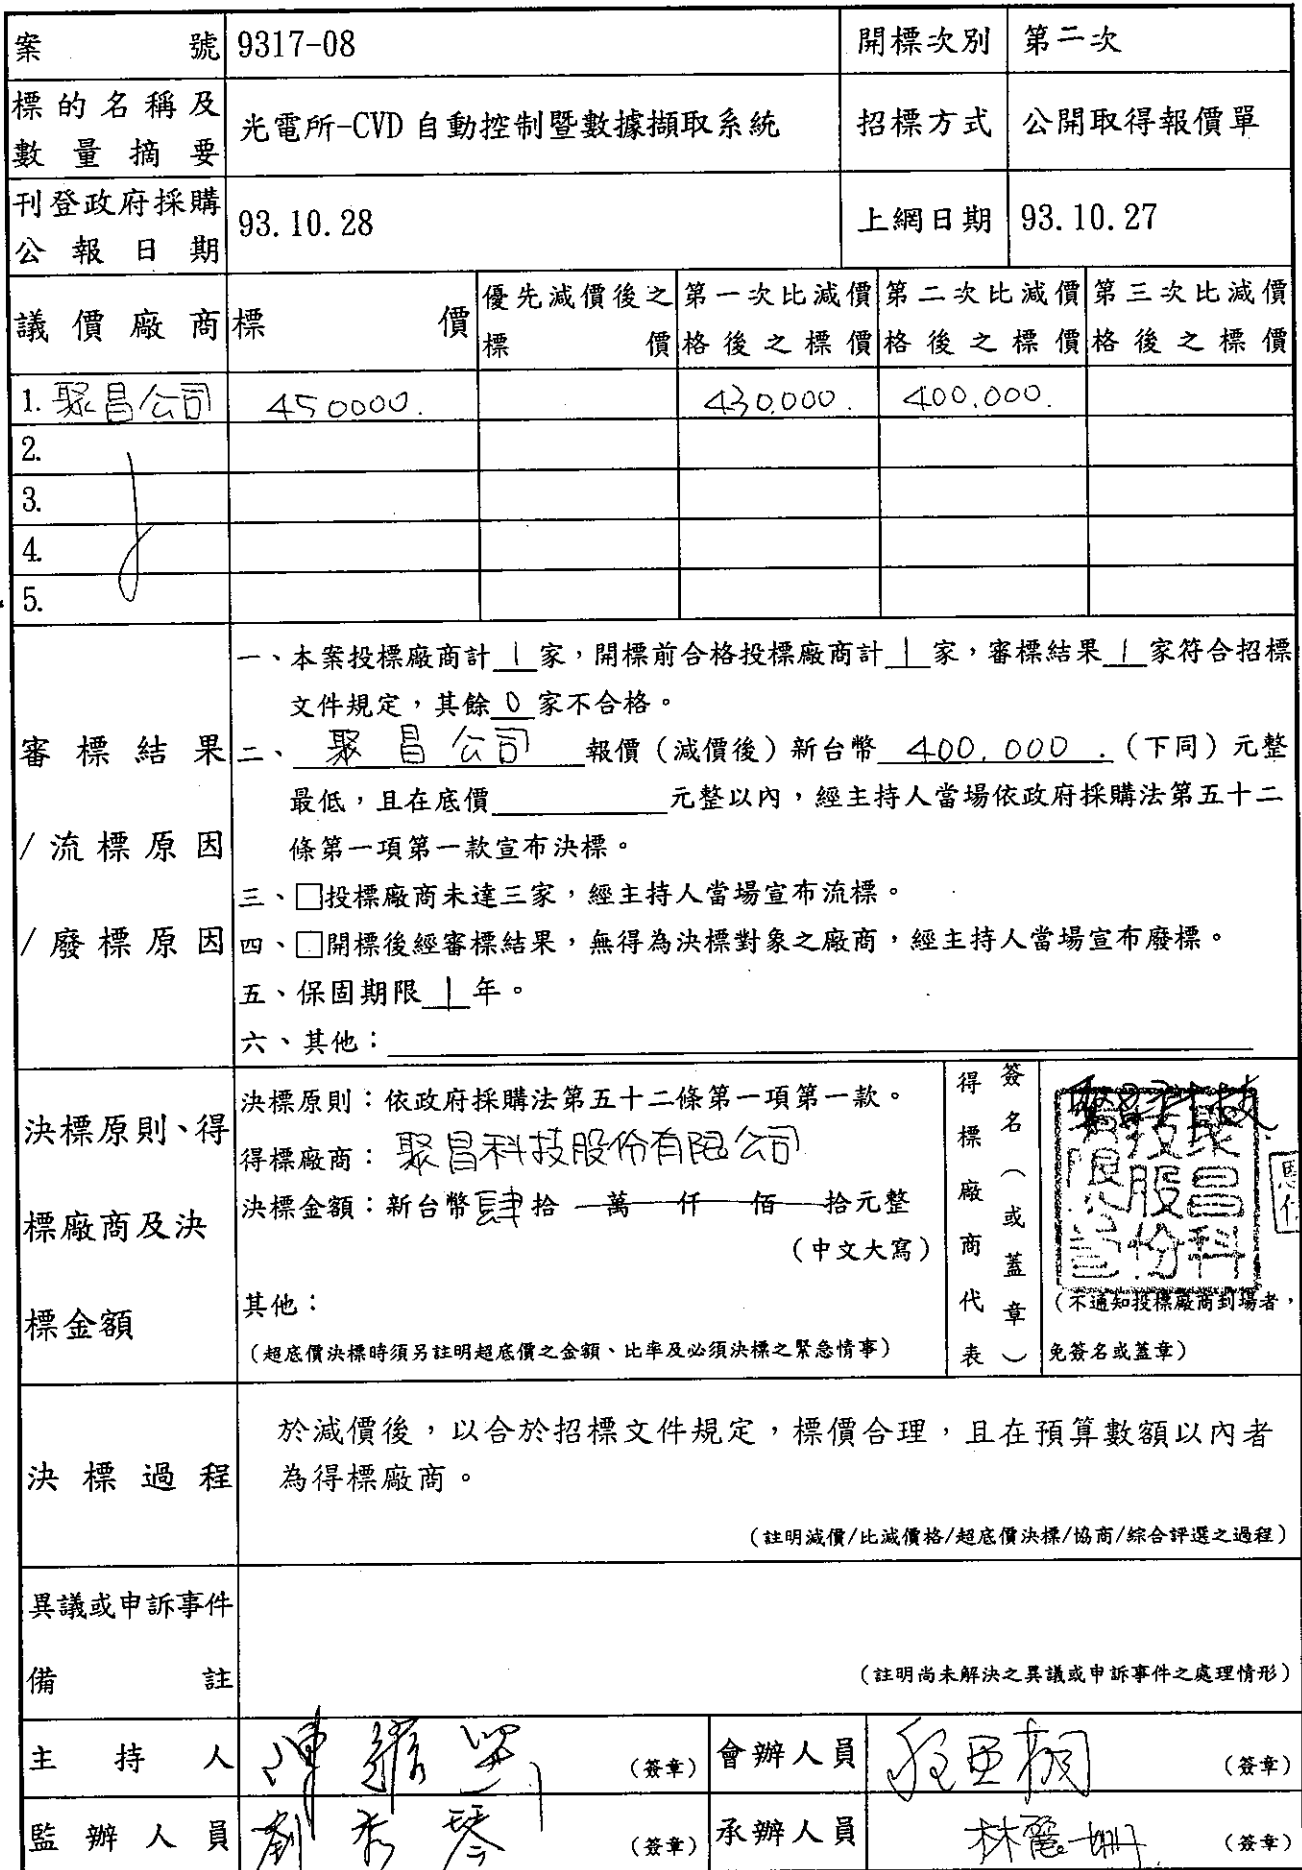 案號 9317-08 開標次別 第二次
標的名稱及
數量摘要
光電所-CVD 自動控制暨數據擷取系統 招標方式 公開取得報價單
刊登政府採購
公報日期
93.10.28 上網日期 93.10.27
議價廠商 標價
優先減價後之
標價
第一次比減價
格後之標價
第二次比減價
格後之標價
第三次比減價
格後之標價
1. 聚昌公司 450000. 430.000. 400.000.
2.
3.
4.
5.
審標結果
/流標原因
/廢標原因
一、本案投標廠商計 1 家,開標前合格投標廠商計 1 家,審標結果 1 家符合招標
文件規定,其餘 0 家不合格。
二、聚昌公司 報價(減價後)新台幣 400,000.(下同)元整
最低,且在底價 元整以內,經主持人當場依政府採購法第五十二
條第一項第一款宣布決標。
三、□投標廠商未達三家,經主持人當場宣布流標。
四、□開標後經審標結果,無得為決標對象之廠商,經主持人當場宣布廢標。
五、保固期限 1 年。
六、其他:
決標原則、得
標廠商及決
標金額
決標原則:依政府採購法第五十二條第一項第一款。
得標廠商:聚昌科技股份有限公司
決標金額:新台幣肆拾 萬 仟 佰 拾元整
(中文大寫)
其他:
(超底價決標時須另註明超底價之金額、比率及必須決標之緊急情事)
得標廠商代表
簽名(或蓋章)
聚昌科
技股份
有限公司
(不通知投標廠商到場者,
免簽名或蓋章)
決標過程
於減價後,以合於招標文件規定,標價合理,且在預算數額以內者
為得標廠商。
(註明減價/比減價格/超底價決標/協商/綜合評選之過程)
異議或申訴事件
備註
(註明尚未解決之異議或申訴事件之處理情形)
主持人 (簽章) 會辦人員 (簽章)
監辦人員 劉秀琴 (簽章) 承辦人員 林麗珊 (簽章)